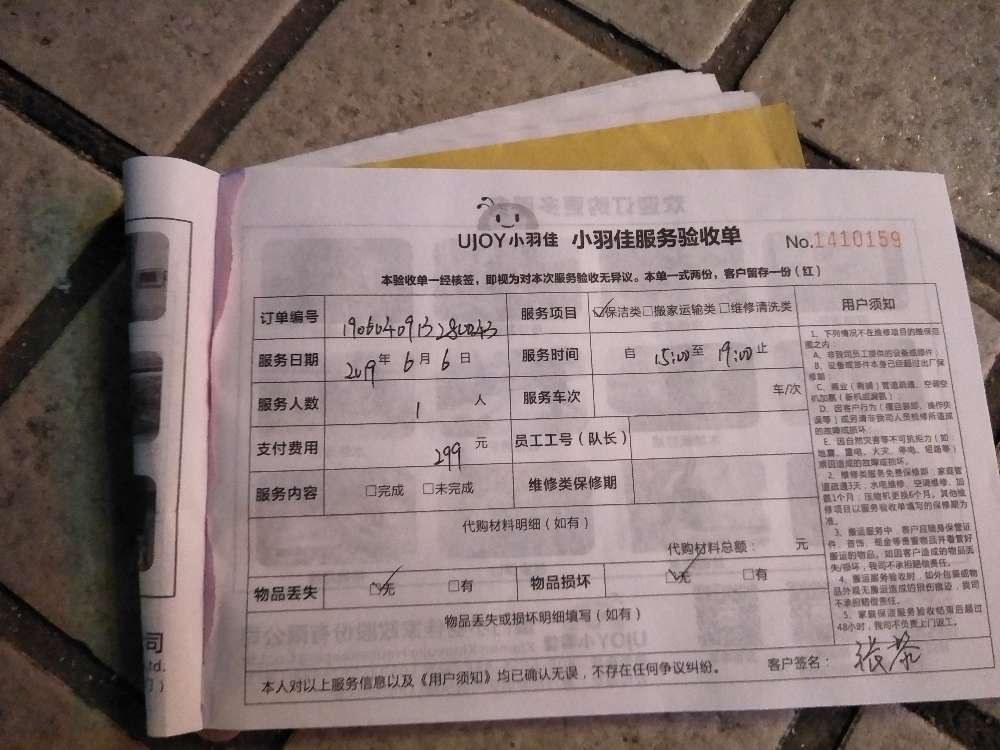 UJOY小羽佳 小羽佳服务验收单 No.1410159
本验收单一经核签，即视为对本次服务验收无异议。本单一式两份，客户留存一份（红）
订单编号 服务项目 ☑保洁类□搬家运输类□维修清洗类 用户须知
服务日期 2019年 6月 6日 服务时间 自 15:00至 19:00止
服务人数 1 人 服务车次 车/次
支付费用 299 元 员工工号（队长）
服务内容 □完成 □未完成 维修类保修期
代购材料明细（如有）
代购材料总额： 元
物品丢失 ☑无 □有 物品损坏 ☑无 □有
物品丢失或损坏明细填写（如有）
本人对以上服务信息以及《用户须知》均已确认无误，不存在任何争议纠纷。 客户签名：
1、下列情况不在维修项目的维保范
围之内：
A、非我司员工提供的设备或部件；
B、设备或部件本身已经超过出厂保
修期；
C、商业（商铺）管道疏通、空调空
机加氟（新机或漏氟）
D、因客户行为（擅自装卸、操作失
误等）或另请非我司人员检修所造成
的故障或损坏；
E、因自然灾害等不可抗拒力（如：
地震、雷电、火灾、停电、短路等）
原因造成的故障或损坏。
2、维修类服务免费保修期：家庭管
道疏通3天，水电维修、空调维修、加
氟1个月；压缩机更换6个月。其他维
修项目以服务验收单填写的保修期为
准。
3、搬运服务中，客户应随身保管证
件、首饰、现金等贵重物品并看管好
搬运的物品。如因客户造成的物品丢
失/损坏，我司不承担赔偿责任。
4、搬运服务验收时，如外包装或物
品外观无搬运造成的损伤痕迹，我司
不承担赔偿责任。
5、家庭保洁服务验收结束后超过
48小时，我司不负责上门返工。
司
td.